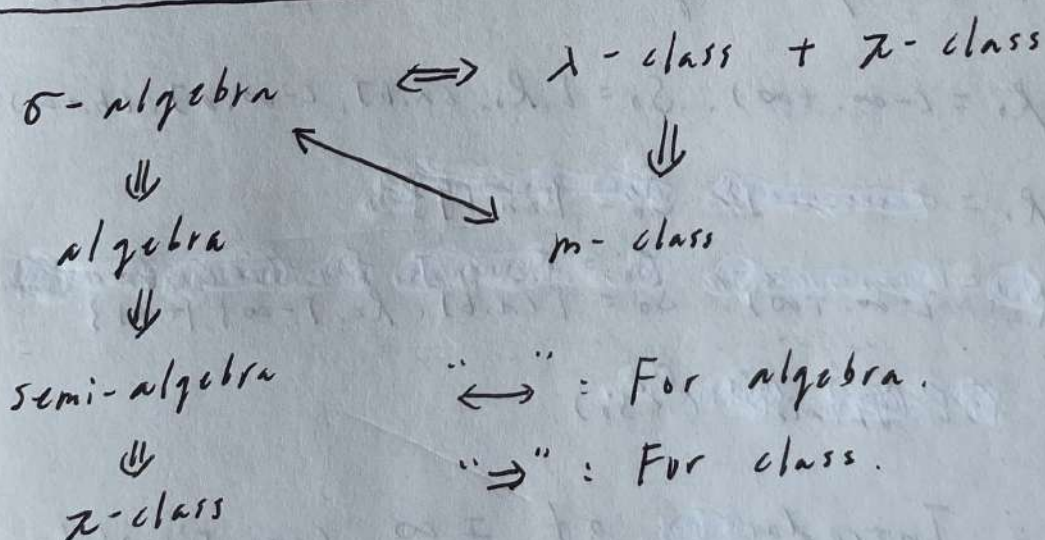 σ-algebra ⟺ λ-class + π-class
⇓ ⇓
algebra m-class
⇓
semi-algebra "↔" : For algebra.
⇓ "⇒" : For class.
π-class